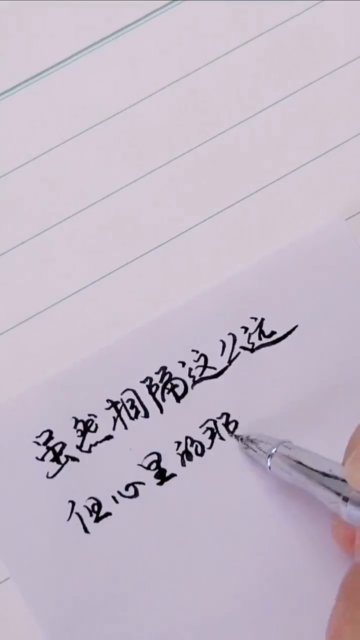 虽然相隔这么远
但心里的那